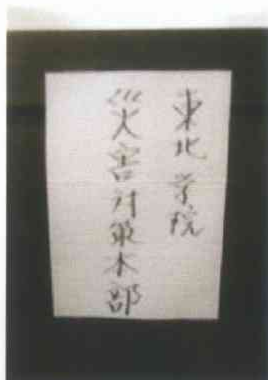 東北学院
災害対策本部